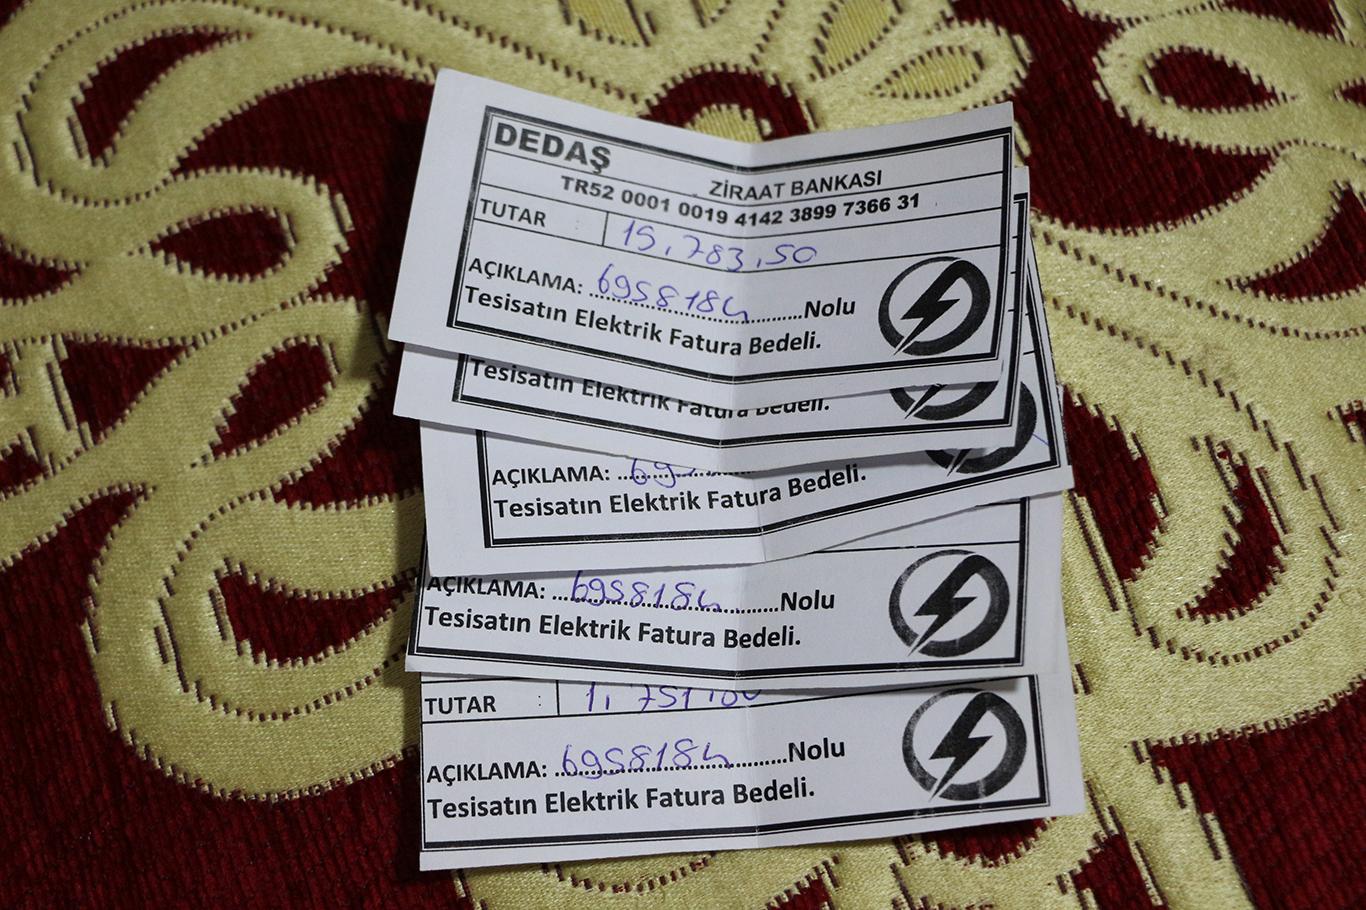 DEDAŞ
ZİRAAT BANKASI
TR52 0001 0019 4142 3899 7366 31
TUTAR 15.783,50
AÇIKLAMA: 6958184 Nolu
Tesisatın Elektrik Fatura Bedeli.
Tesisatın Elektrik Fatura Bedeli.
AÇIKLAMA: 69
Tesisatın Elektrik Fatura Bedeli.
AÇIKLAMA: 6958184 Nolu
Tesisatın Elektrik Fatura Bedeli.
TUTAR : 1.751,00
AÇIKLAMA: 6958184 Nolu
Tesisatın Elektrik Fatura Bedeli.